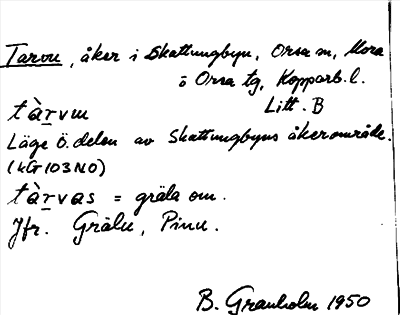 Tarvu, åker i Skattungbyn, Orsa sn, Mora
o Orsa tg, Kopparb. l.
Litt. B
tàrvuɩ
Läge ö. delen av Skattungbyns åkerområde.
(kG 103 NO)
tàrvas = gräla om.
Jfr. Grälu, Pinu.
B. Granholm 1950